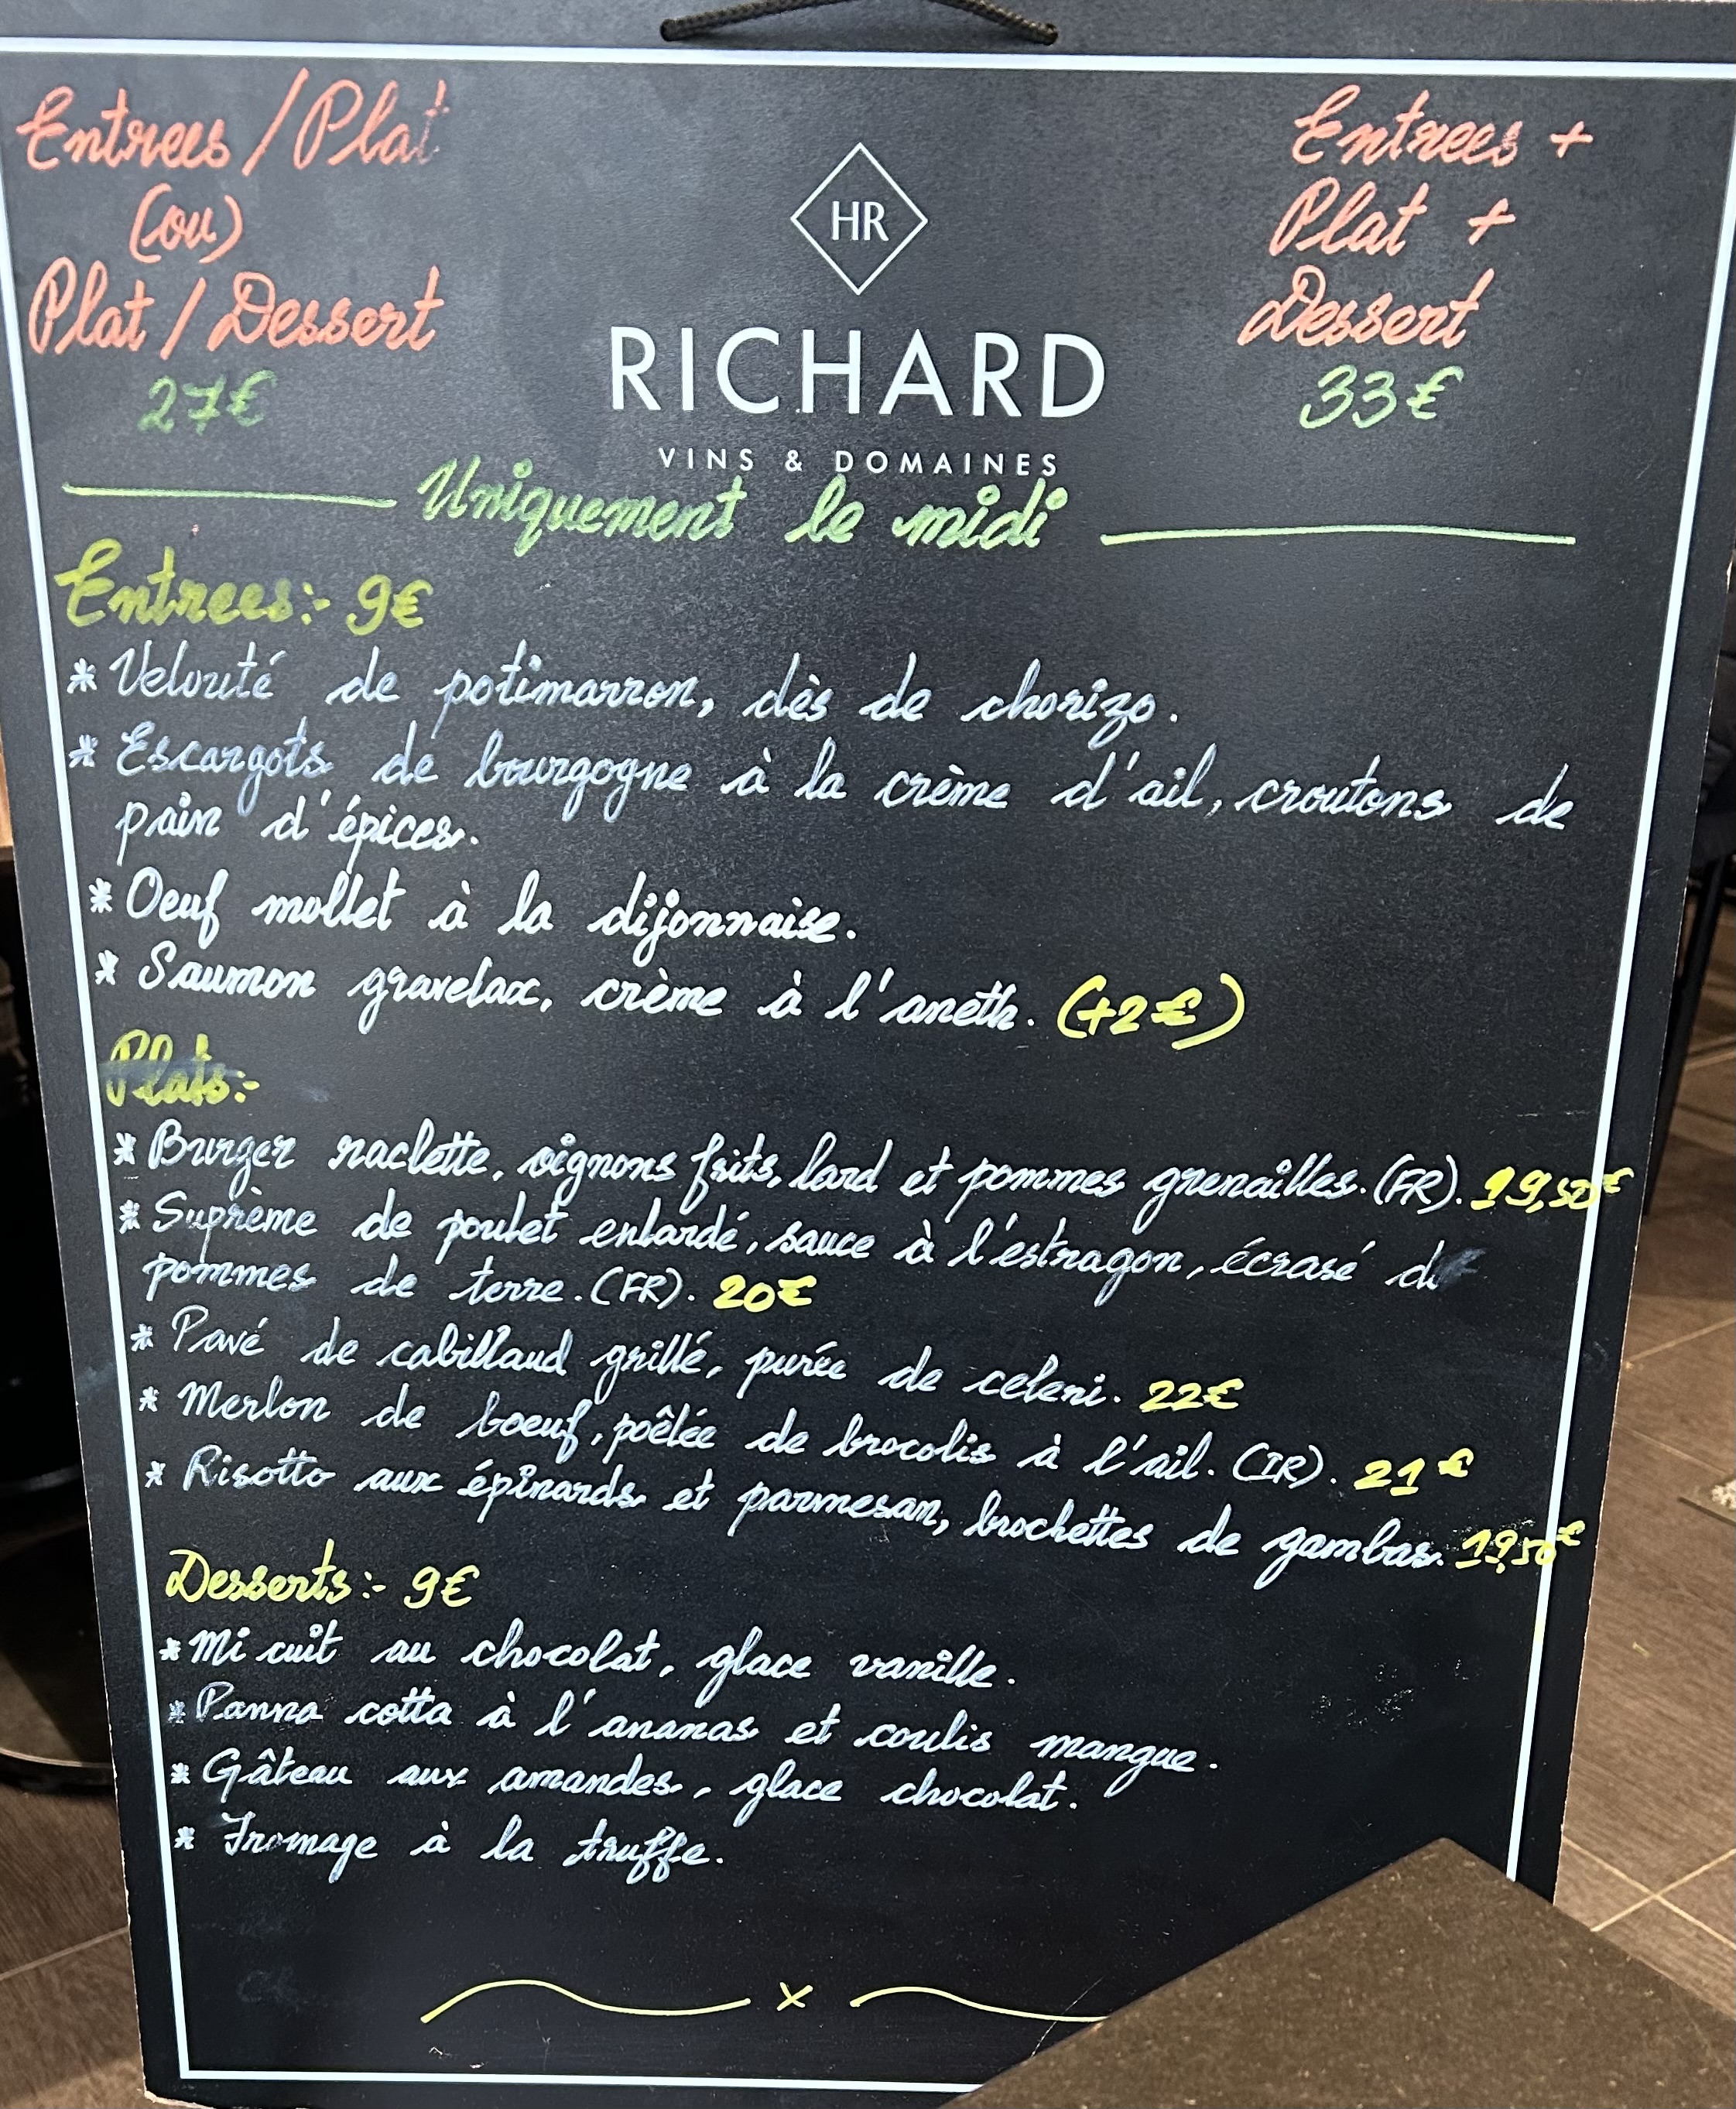 Entrees / Plat
(ou)
Plat / Dessert
27€
HR
RICHARD
VINS & DOMAINES
Entrees +
Plat +
Dessert
33€
Uniquement le midi
Entrees:- 9€
* Velouté de potimarron, dès de chorizo.
* Escargots de bourgogne à la crème d'ail, croutons de
pain d'épices.
* Oeuf mollet à la dijonnaise.
* Saumon gravelax, crème à l'aneth. (+2€)
Plats:-
* Burger raclette, oignons frits, lard et pommes grenailles. (FR). 19,50€
* Suprème de poulet enlardé, sauce à l'estragon, écrasé de
pommes de terre. (FR). 20€
* Pavé de cabillaud grillé, purée de celeri. 22€
* Merlon de boeuf, poêlée de brocolis à l'ail. (IR). 21€
* Risotto aux épinards et parmesan, brochettes de gambas. 19,50€
Desserts:- 9€
* Mi cuit au chocolat, glace vanille.
* Panna cotta à l'ananas et coulis mangue.
* Gâteau aux amandes, glace chocolat.
* Fromage à la truffe.
x